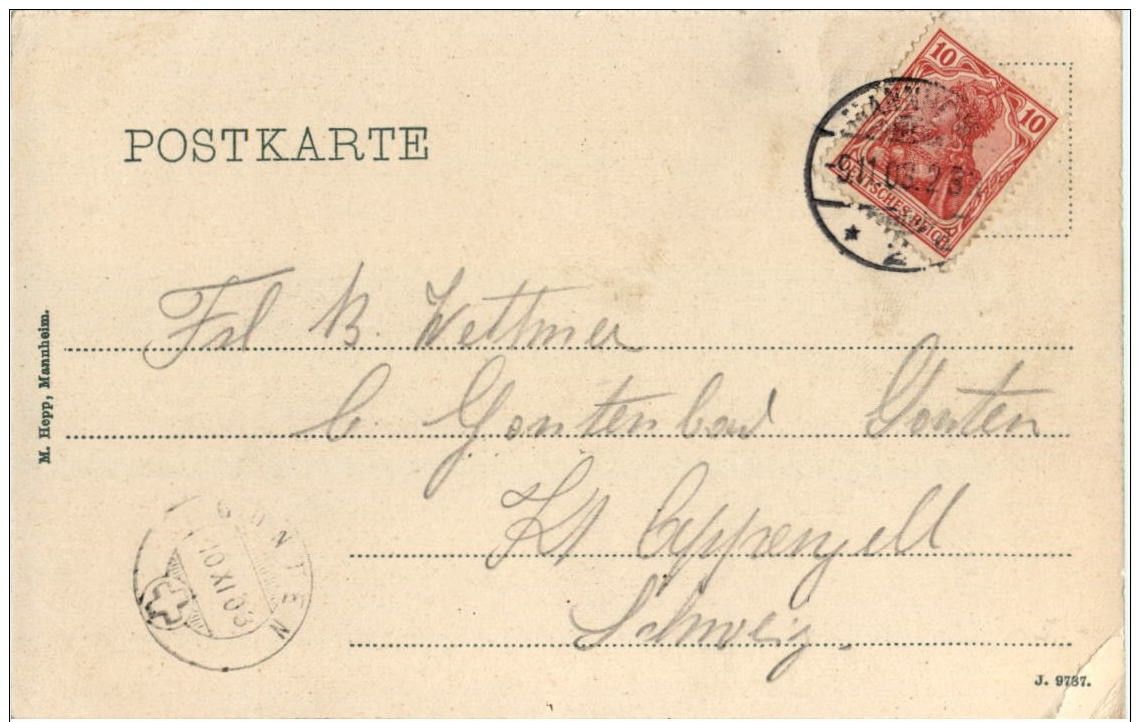 POSTKARTE
10
10
DEUTSCHES REICH
MANNHEIM
-9.11.03. 2-3
* 2
Frl B. Wettmer
b. Gontenbad Gonten
Kt Appenzell
Schweiz.
GONTEN
10 XI 03
M. Hepp, Mannheim.
J. 9737.